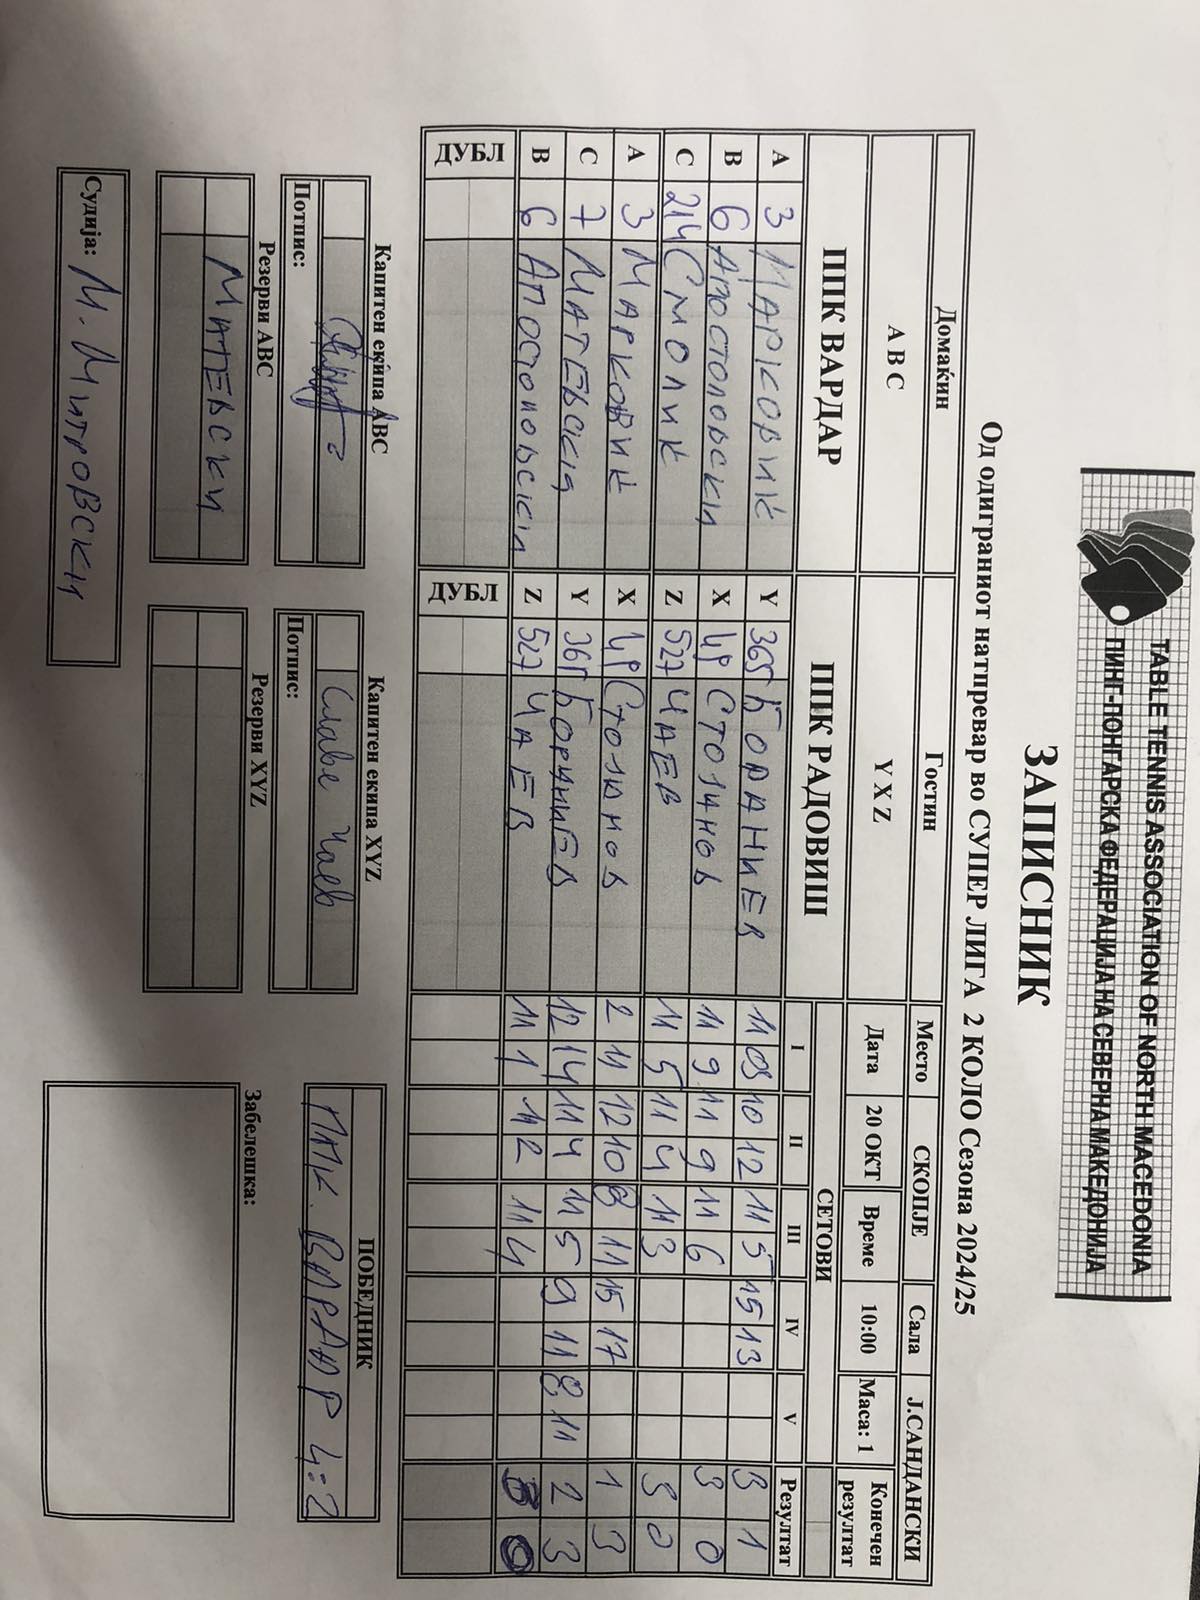 TABLE TENNIS ASSOCIATION OF NORTH MACEDONIA
ПИНГ-ПОНГАРСКА ФЕДЕРАЦИЈА НА СЕВЕРНА МАКЕДОНИЈА
ЗАПИСНИК
Од одиграниот натпревар во СУПЕР ЛИГА 2 КОЛО Сезона 2024/25
Домаќин Гостин Место СКОПЈЕ Сала Ј.САНДАНСКИ
A B C Y X Z Дата 20 ОКТ Време 10:00 Маса: 1 Конечен резултат
ППК ВАРДАР ППК РАДОВИШ СЕТОВИ
I II III IV V Резултат
A 3 МАРКОВИЌ Y 365 11 10 12 11 5 15 13 3 1
B 6 АПОСТОЛОВСКИ X СТОЈАНОВ 11 9 11 9 11 6 3 0
C 214 СМОЛИЌ Z 527 ЧАЕВ 11 5 11 4 11 3 3 0
A 3 МАРКОВИЌ X СТОЈАНОВ 2 11 12 10 8 11 15 17 1 3
C 7 МАТЕВСКИ Y 365 12 14 11 4 11 5 9 11 8 11 2 3
B 6 АПОСТОЛОВСКИ Z 527 ЧАЕВ 11 1 11 2 11 4 3 0
ДУБЛ ДУБЛ
Капитен екипа ABC Капитен екипа XYZ ПОБЕДНИК
Славе Чаев ППК. ВАРДАР 4:2
Потпис: Потпис:
Резерви ABC Резерви XYZ Забелешка:
МАТЕВСКИ
Судија: М. Митровски